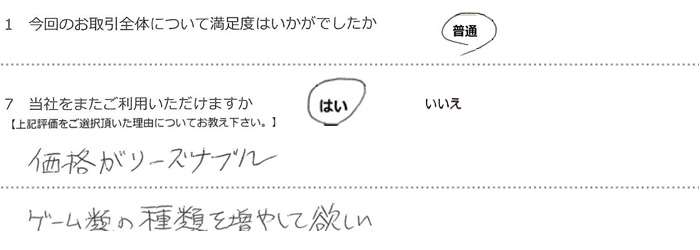 1 今回のお取引全体について満足度はいかがでしたか 普通
7 当社をまたご利用いただけますか はい いいえ
【上記評価をご選択頂いた理由についてお教え下さい。】
価格がリーズナブル
ゲーム類の種類を増やして欲しい